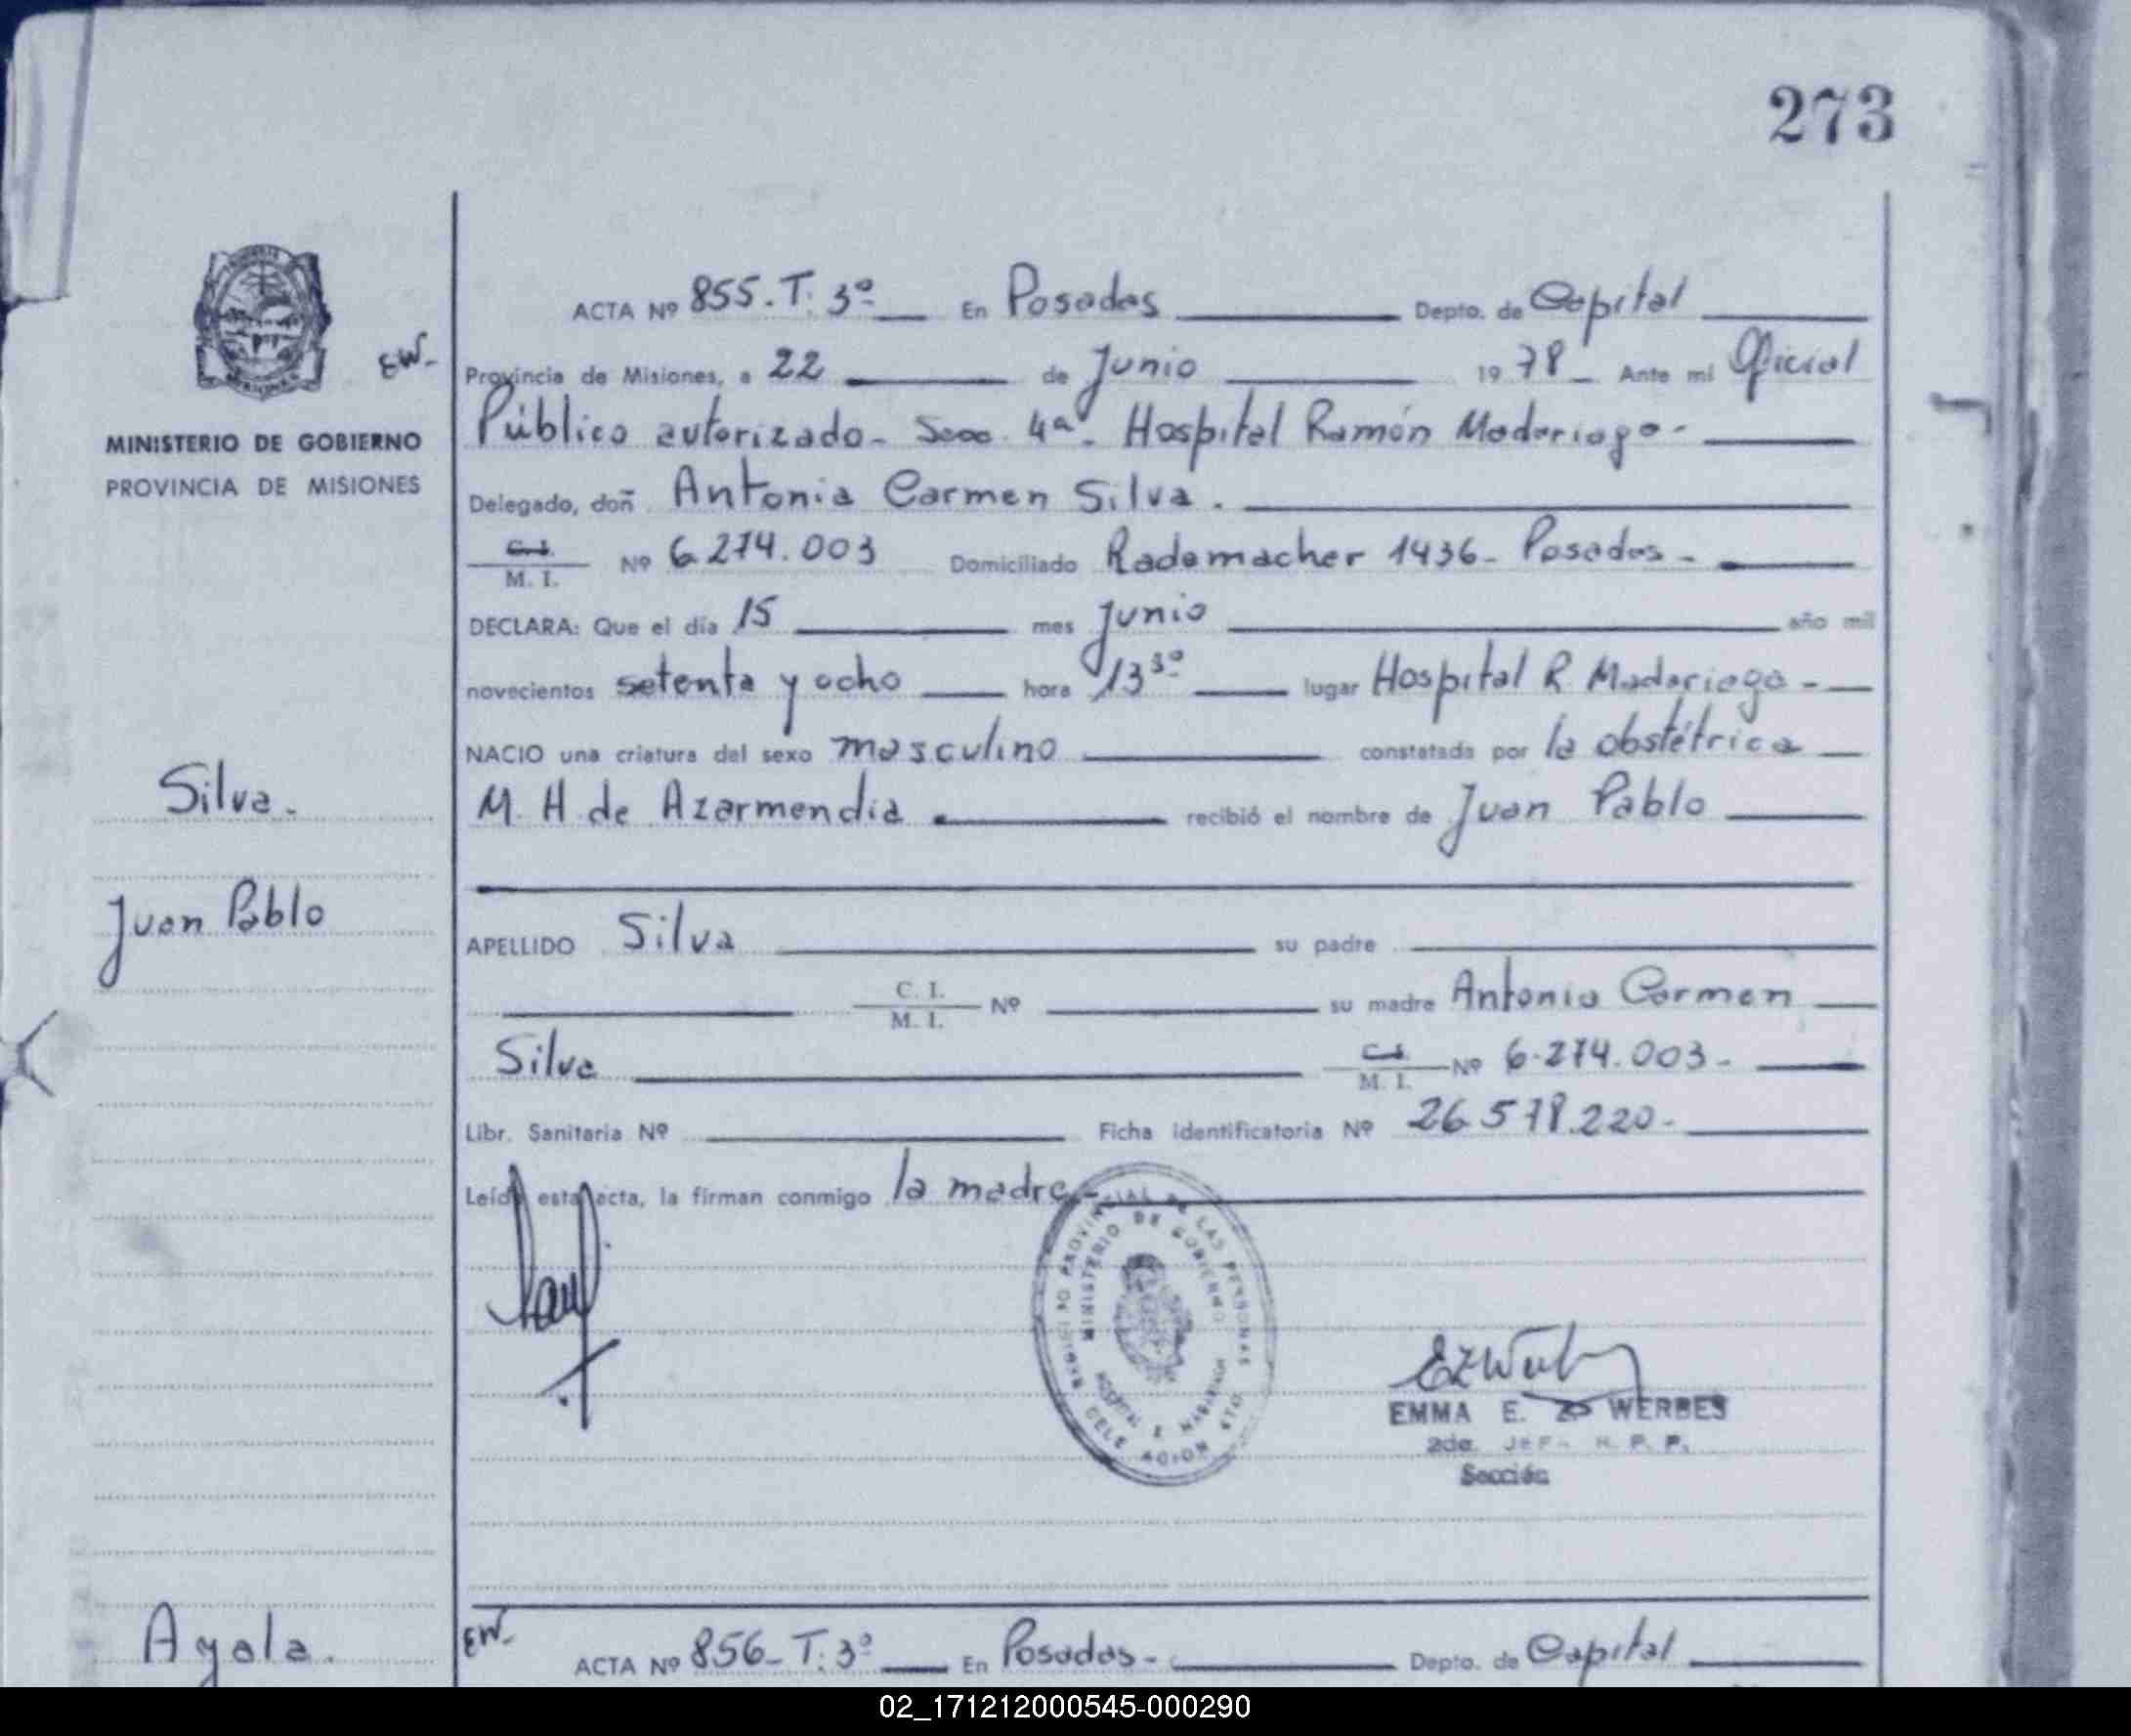 273
ACTA Nº 855.T. 3º En Posadas Depto. de Capital
EW- Provincia de Misiones, a 22 de Junio 1978 Ante mi Oficial
MINISTERIO DE GOBIERNO
PROVINCIA DE MISIONES
Público autorizado- Secc. 4ª- Hospital Ramón Madariaga-
Delegado, doñ Antonia Carmen Silva.
C.I. M. I. Nº 6.274.003 Domiciliado Rademacher 1436- Posadas-
DECLARA: Que el día 15 mes Junio año mil
novecientos setenta y ocho hora 13³⁰ lugar Hospital R Madariaga-
NACIO una criatura del sexo masculino constatada por la obstétrica
Silva.
M. H de Azarmendia recibió el nombre de Juan Pablo
Juan Pablo
APELLIDO Silva su padre
C. I. M. I. Nº su madre Antonia Carmen
Silva C.I. M. I. Nº 6.274.003-
Libr. Sanitaria Nº Ficha identificatoria Nº 26.578.220-
Leída esta acta, la firman conmigo la madre-
MINISTERIO DE GOBIERNO
EMMA E. WERBES
2da. JEF- R. P. P.
Sección
Ayala.
EW- ACTA Nº 856-T.3º En Posadas- Depto. de Capital
02_171212000545-000290